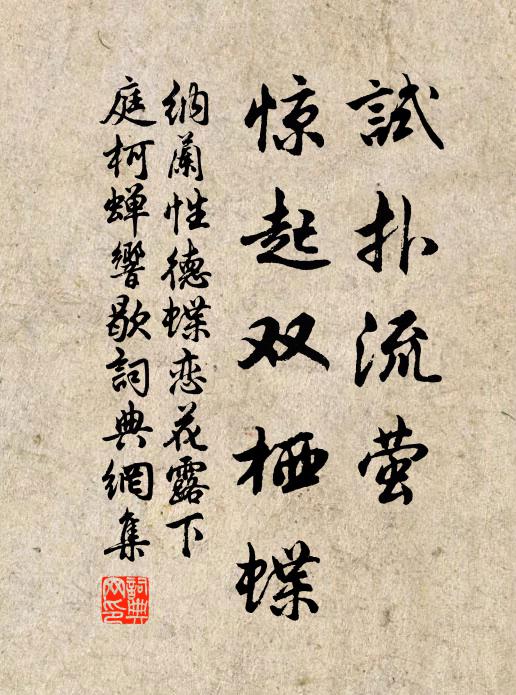 試扑流萤
惊起双栖蝶
纳蘭性德蝶恋花露下
庭柯蝉響歇詞典網集
詞典